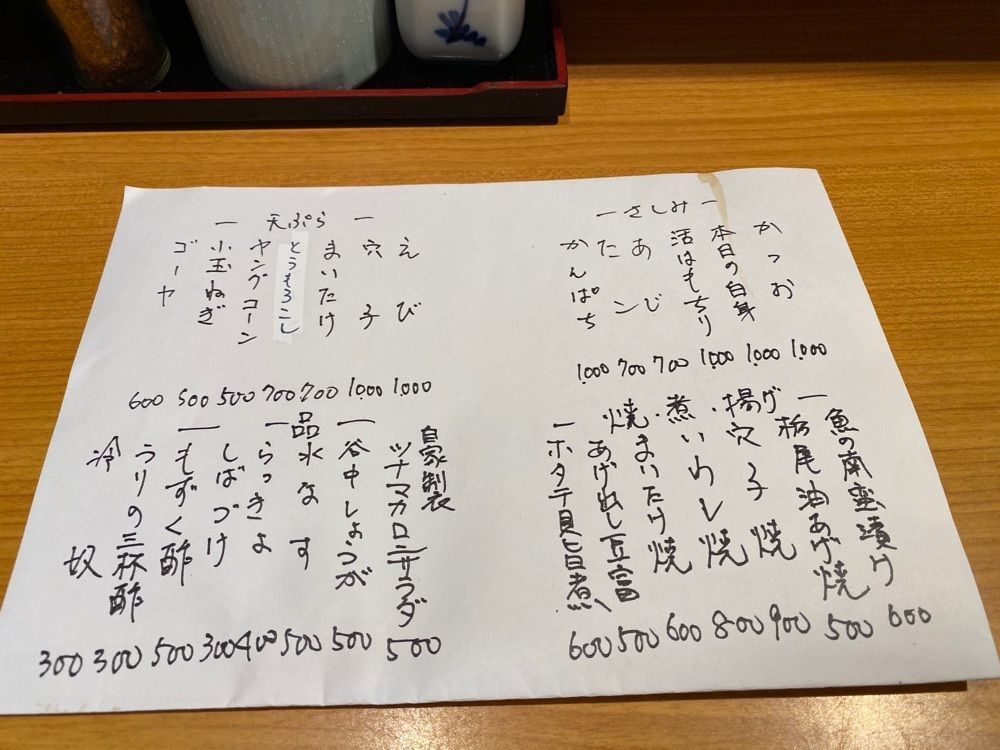 ーさしみー
かつお 1,000
本日の白身 1,000
活はもちり 1,000
あじ 700
たこ 700
かんぱち 1,000
ー揚げ・煮・焼ー
魚の南蛮漬け 600
栃尾油あげ焼 500
穴子焼 900
いわし焼 800
まいたけ焼 600
あげ出し豆富 500
ホタテ貝旨煮 600
ー天ぷらー
えび 1,000
穴子 1,000
まいたけ 700
とうもろこし 700
ヤングコーン 500
小玉ねぎ 500
ゴーヤ 600
ー一品ー
自家製ツナマカロニサラダ 500
谷中しょうが 500
水なす 500
らっきょ 400
しばづけ 300
もずく酢 500
うりの三杯酢 300
冷奴 300